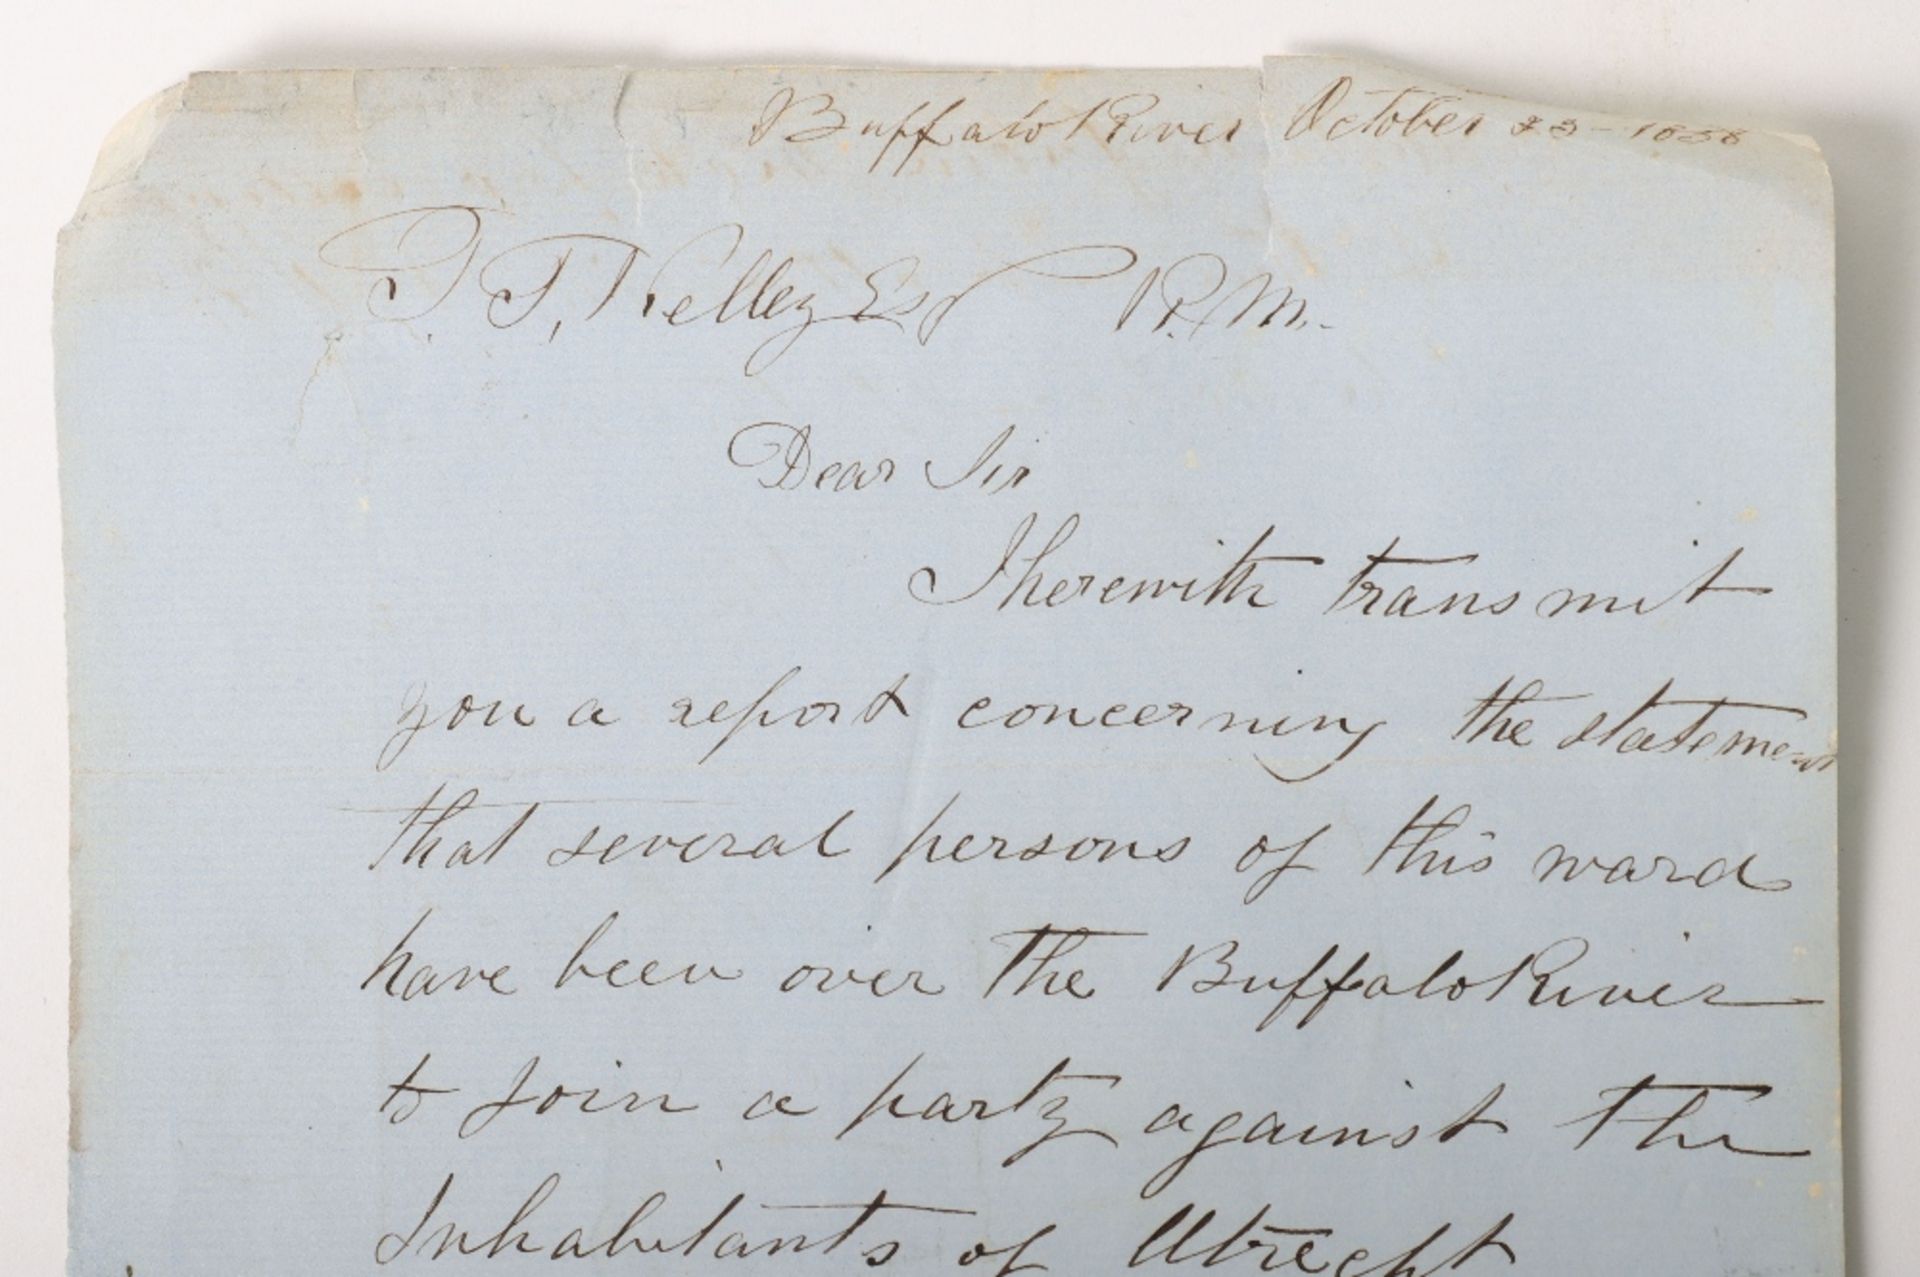 Buffalo River October 23 - 1858
T. T. Kelley Esq R. M.
Dear Sir
I herewith transmit
you a report concerning the statement
that several persons of this ward
have been over the Buffalo River
to join a party against the
Inhabitants of Utrecht